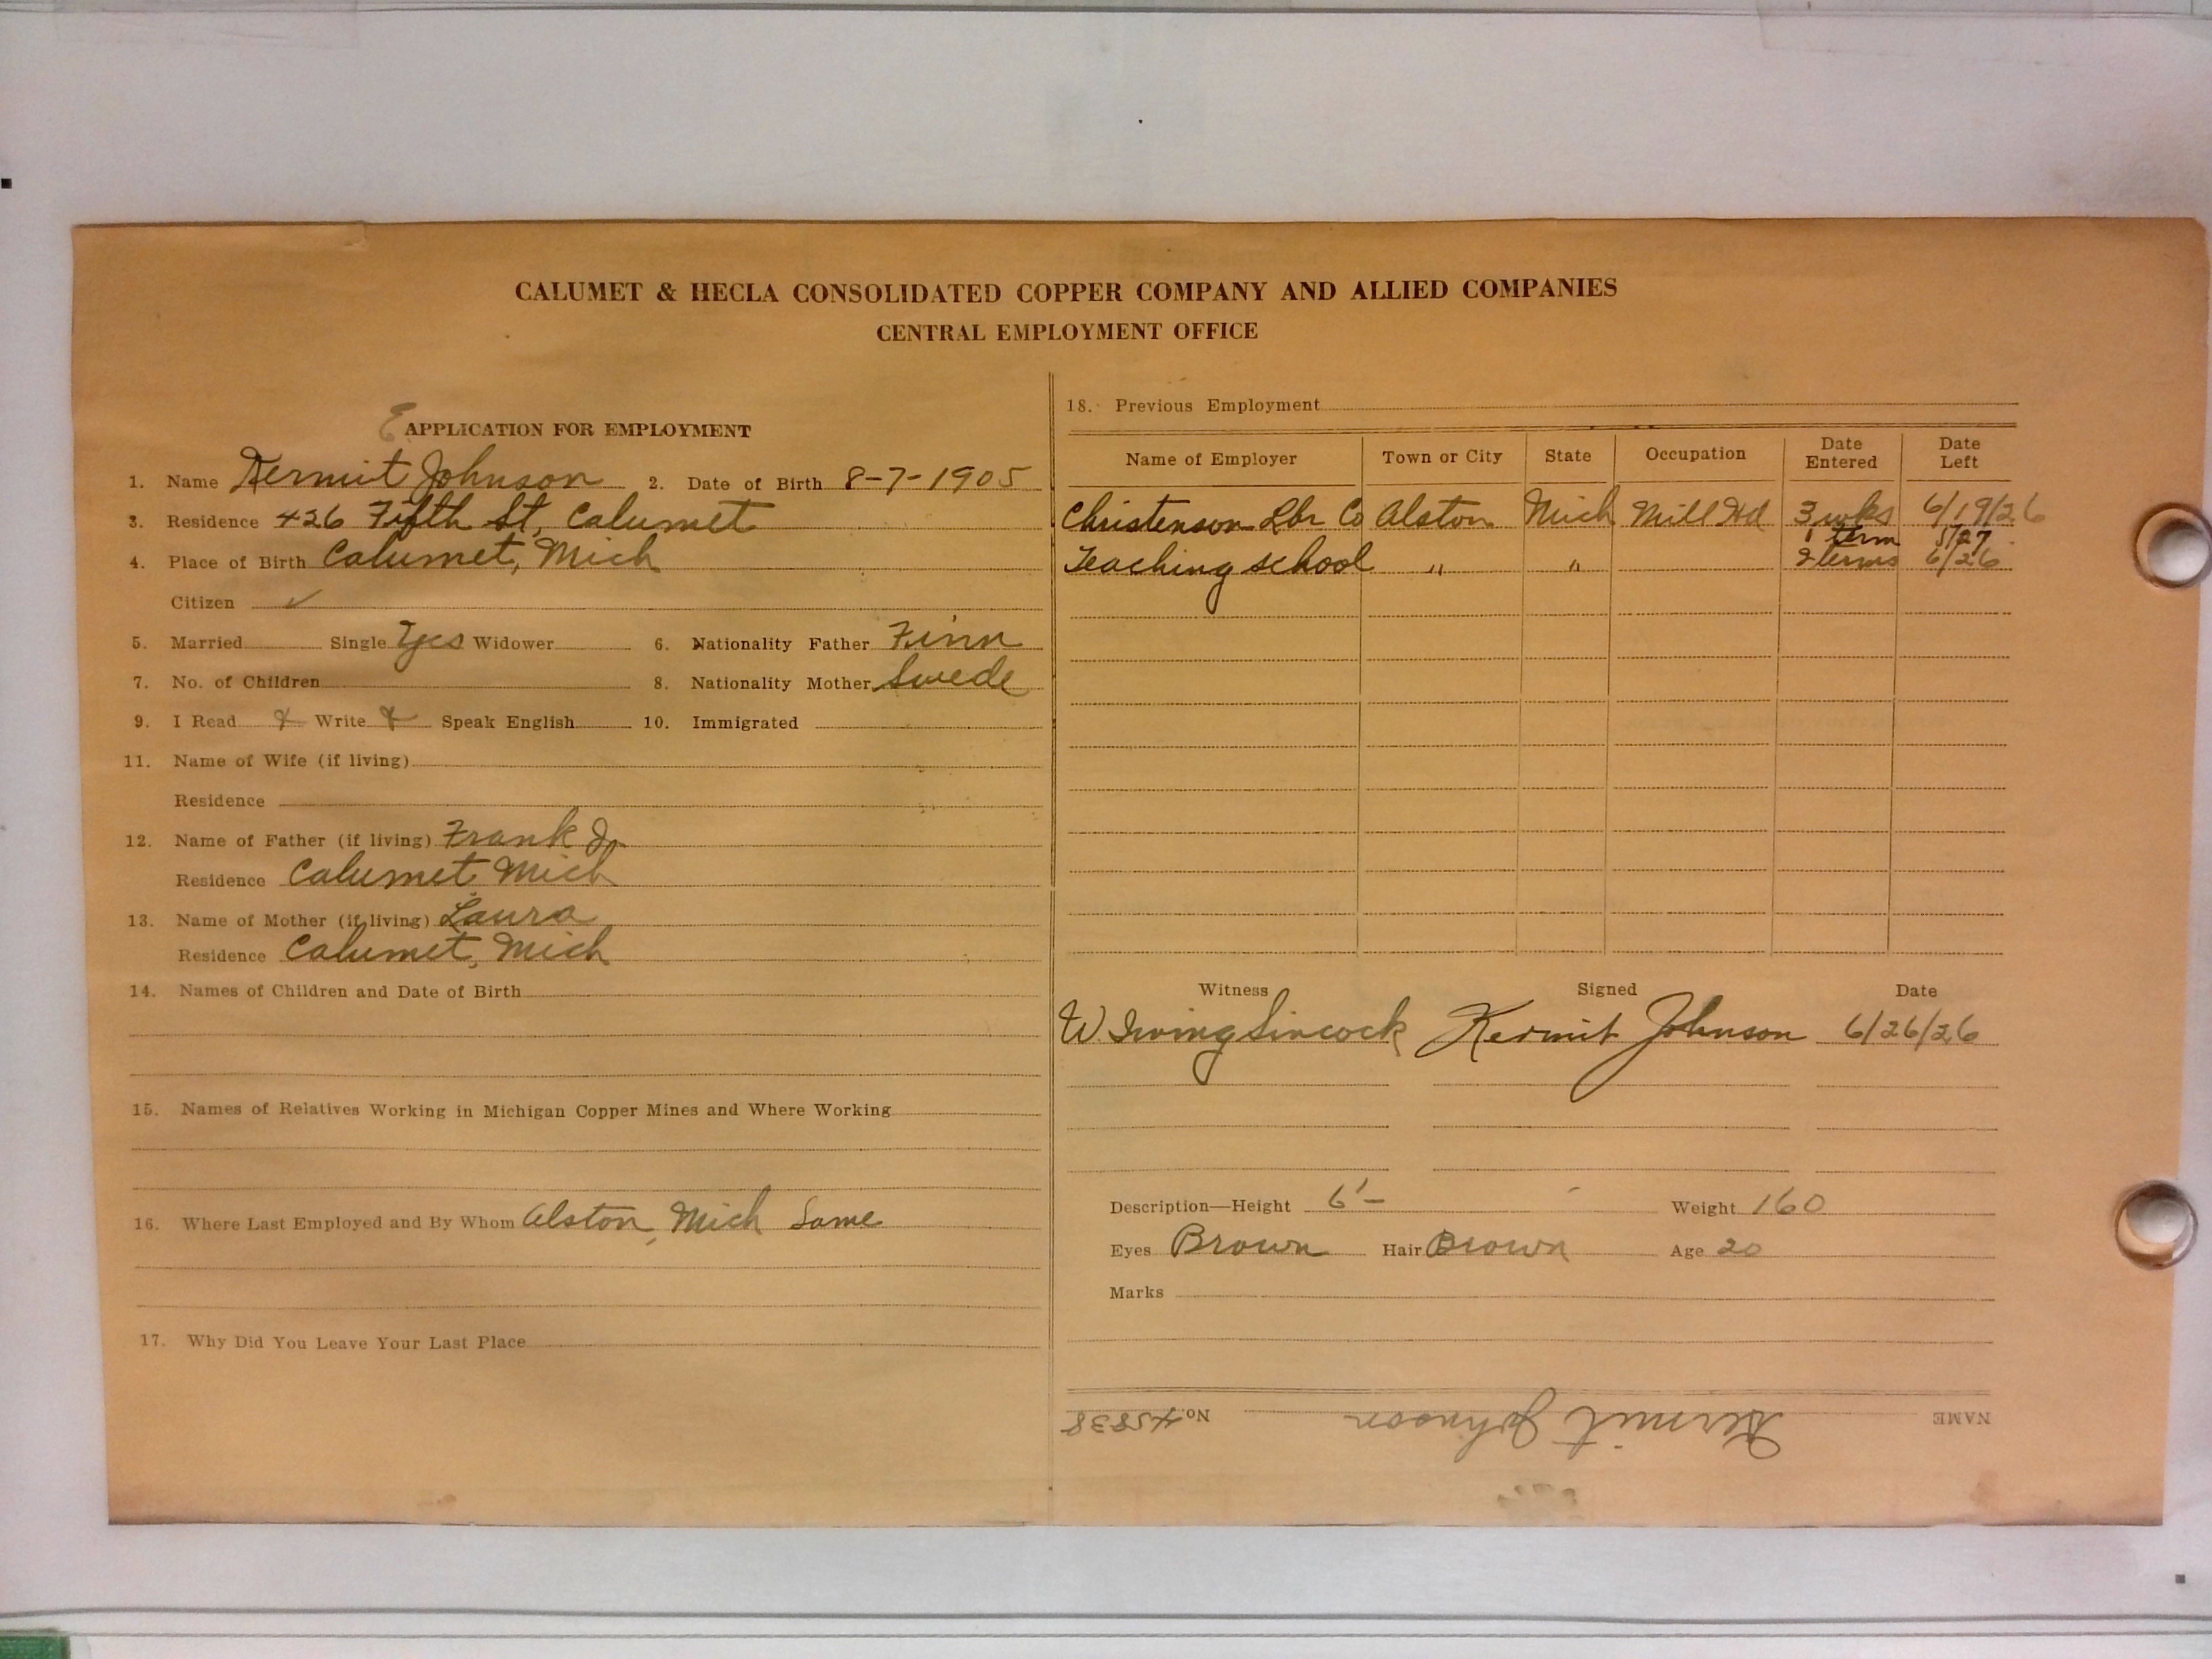 CALUMET & HECLA CONSOLIDATED COPPER COMPANY AND ALLIED COMPANIES
CENTRAL EMPLOYMENT OFFICE
E
APPLICATION FOR EMPLOYMENT
1. Name Kermit Johnson 2. Date of Birth 8-7-1905
3. Residence 426 Fifth St, Calumet
4. Place of Birth Calumet, Mich
Citizen ✓
5. Married Single Yes Widower 6. Nationality Father Finn
7. No. of Children 8. Nationality Mother Swede
9. I Read Write Speak English 10. Immigrated
11. Name of Wife (if living)
Residence
12. Name of Father (if living) Frank
Residence Calumet Mich
13. Name of Mother (if living) Laura
Residence Calumet, Mich
14. Names of Children and Date of Birth
15. Names of Relatives Working in Michigan Copper Mines and Where Working
16. Where Last Employed and By Whom Alston, Mich Same
17. Why Did You Leave Your Last Place
18. Previous Employment
Name of Employer Town or City State Occupation Date Entered Date Left
Christenson Lbr Co Alston Mich Mill Hd 3 wks 6/19/26
1 term 5/27
Teaching school " " 2 terms 6/26
Witness Signed Date
W. Irving Sincock Kermit Johnson 6/26/26
Description—Height 6'- Weight 160
Eyes Brown Hair Brown Age 20
Marks
NAME Kermit Johnson No. 45838